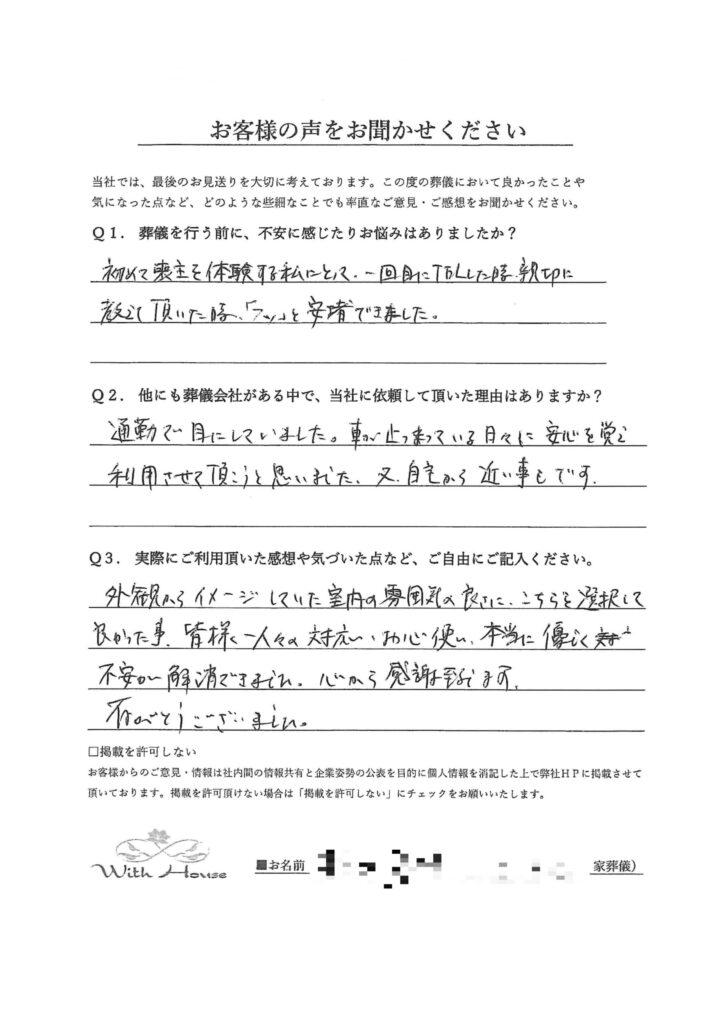 お客様の声をお聞かせください
当社では、最後のお見送りを大切に考えております。この度の葬儀において良かったことや
気になった点など、どのような些細なことでも率直なご意見・ご感想をお聞かせください。
Q1. 葬儀を行う前に、不安に感じたりお悩みはありましたか？
初めて喪主を体験する私にとって、一回目にTELした時、親切に
教えて頂いた時、「フッ」と安堵できました。
Q2. 他にも葬儀会社がある中で、当社に依頼して頂いた理由はありますか？
通勤で目にしていました。車が止まっている日々に安心を覚え
利用させて頂こうと思いました、又、自宅から近い事もです。
Q3. 実際にご利用頂いた感想や気づいた点など、ご自由にご記入ください。
外観からイメージしていた室内の雰囲気の良さに、こちらを選択して
良かった事、皆様、一人々の対応い、お心使い、本当に優しく
不安が解消できました。心から感謝致します。
有がとうございました。
□掲載を許可しない
お客様からのご意見・情報は社内間の情報共有と企業姿勢の公表を目的に個人情報を消記した上で弊社HPに掲載させて
頂いております。掲載を許可頂けない場合は「掲載を許可しない」にチェックをお願いいたします。
With House ■お名前 家葬儀）